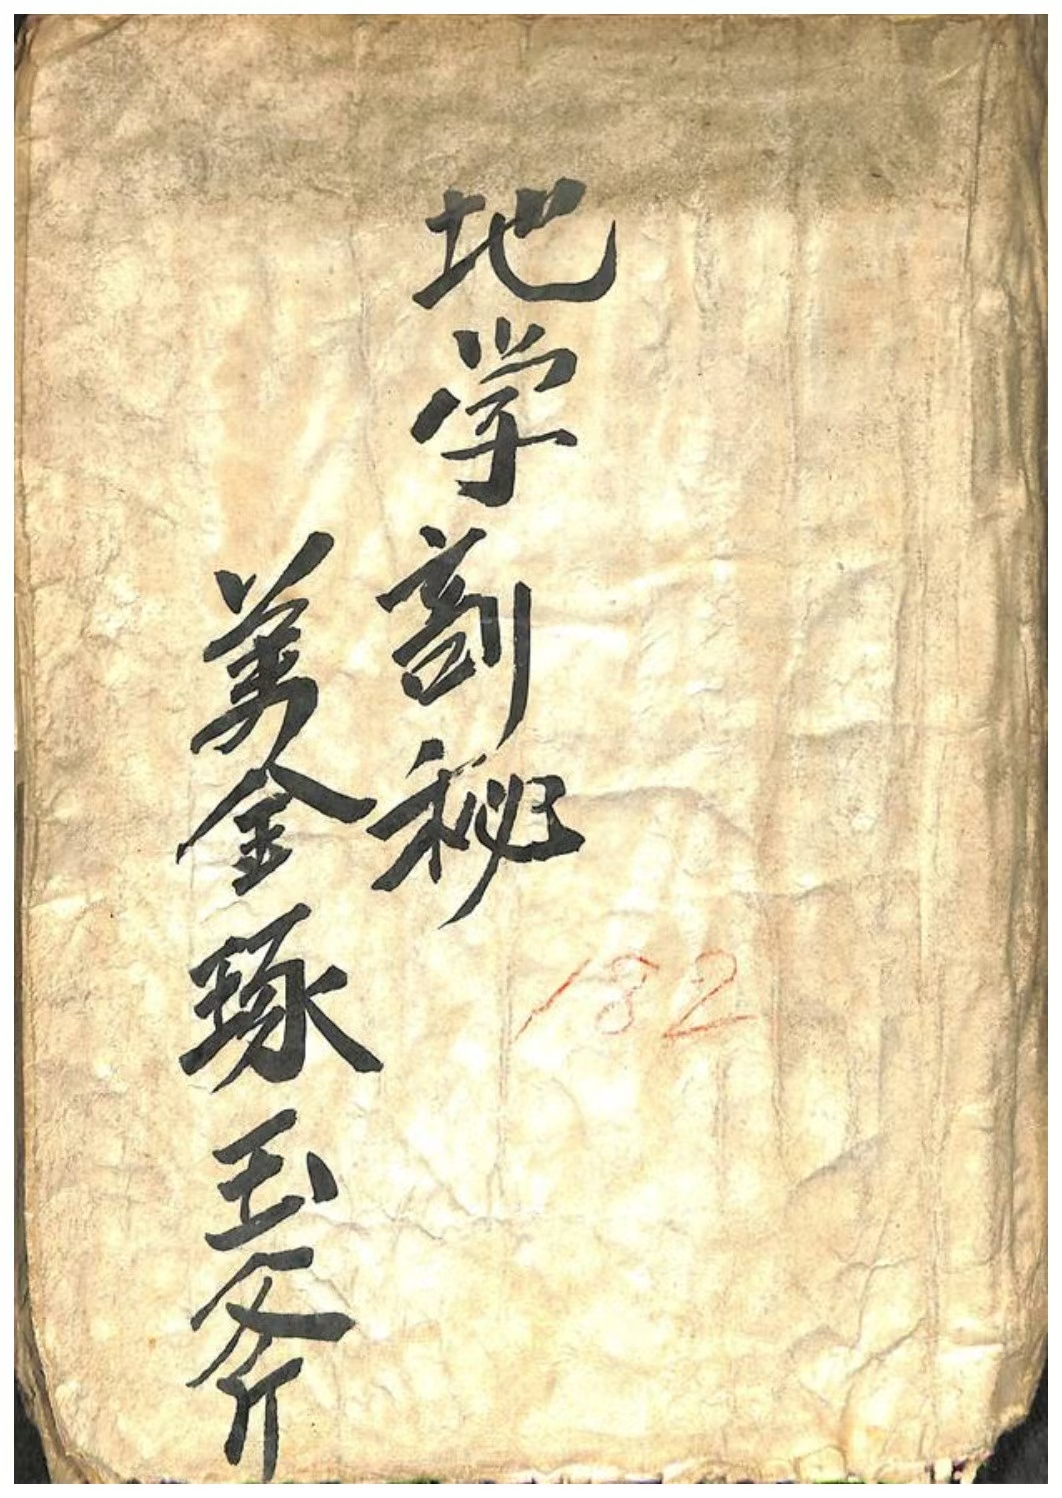 地学剖秘
萬金琢玉斧
182